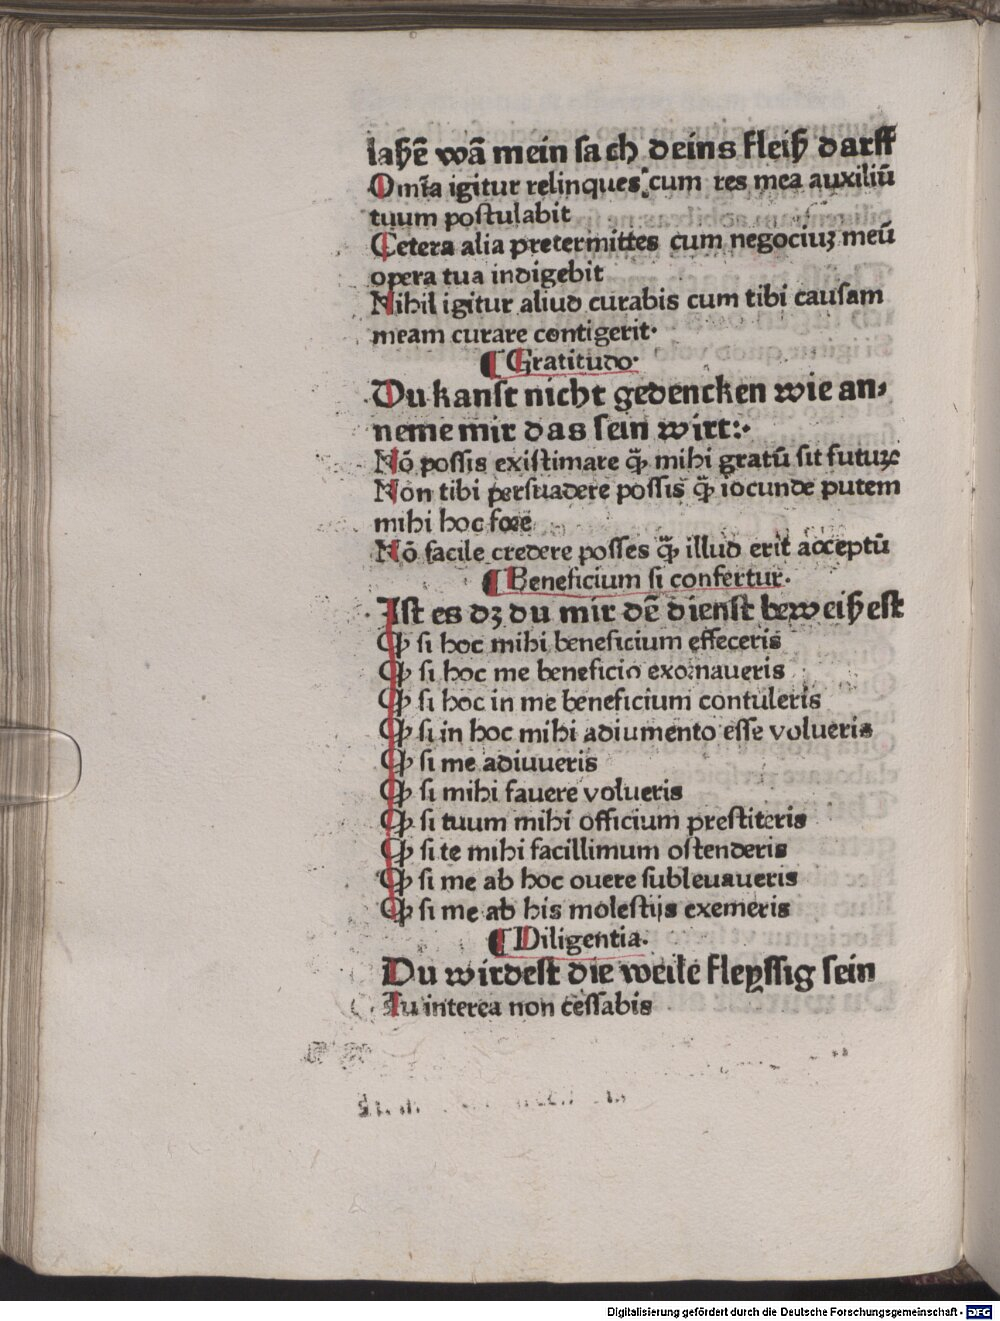 laßē wā mein sach deins fleiß darff
Om̄ia igitur relinques: cum res mea auxiliū
tuum postulabit
Cetera alia pretermittes cum negociuꝫ meū
opera tua indigebit
Nihil igitur aliud curabis cum tibi causam
meam curare contigerit·
¶ Gratitudo·
Du kanst nicht gedencken wie an⸗
neme mir das sein wirt:·
Nō possis existimare ꝙ̄ mihi gratū sit futuꝝe
Non tibi persuadere possis ꝙ̄ iocunde putem
mihi hoc foꝛe
Nō facile credere posses ꝙ̄ illud erit acceptū
¶ Beneficium si confertur·
Ist es dꝫ du mir dē dienst beweißest
Ꝙ si hoc mihi beneficium effeceris
Ꝙ si hoc me beneficio exoꝛnaueris
Ꝙ si hoc in me beneficium contuleris
Ꝙ si in hoc mihi adiumento esse volueris
Ꝙ si me adiuueris
Ꝙ si mihi fauere volueris
Ꝙ si tuum mihi officium prestiteris
Ꝙ si te mihi facillimum ostenderis
Ꝙ si me ab hoc onere subleuaueris
Ꝙ si me ab his molestijs exemeris
¶ Diligentia·
Du wirdest die weile fleyssig sein
Tu interea non cessabis
Digitalisierung gefördert durch die Deutsche Forschungsgemeinschaft - DFG